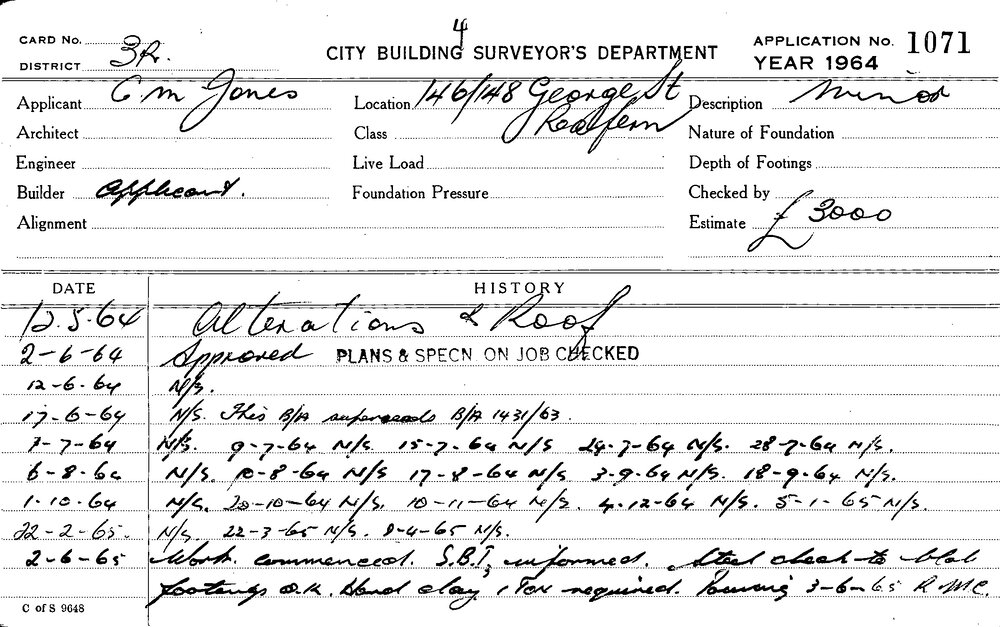 4
CARD No.
DISTRICT 3R.
CITY BUILDING SURVEYOR'S DEPARTMENT
APPLICATION No. 1071
YEAR 1964
Applicant C M Jones
Location 146/148 George St Redfern
Description Minor
Architect
Class
Nature of Foundation
Engineer
Live Load
Depth of Footings
Builder Applicant.
Foundation Pressure
Checked by
Alignment
Estimate £3000
DATE HISTORY
12.5.64 Alterations & Roof
2-6-64 Approved PLANS & SPECN ON JOB CHECKED
12-6-64 N/S.
17-6-64 N/S. This B/A superseeds B/A 1431/63.
7-7-64 N/S. 9-7-64 N/S 15-7-64 N/S 24-7-64 N/S. 28-7-64 N/S.
6-8-64 N/S. 10-8-64 N/S 17-8-64 N/S 3-9-64 N/S. 18-9-64 N/S.
1-10-64 N/S. 20-10-64 N/S. 10-11-64 N/S. 4-12-64 N/S. 5-1-65 N/S.
22-2-65. N/S. 22-3-65 N/S. 9-4-65 N/S.
2-6-65 Work commenced. S.B.I, informed. Steel check to
footings O.K. Hard clay, required. Pouring 3-6-65 R.MC.
C of S 9648